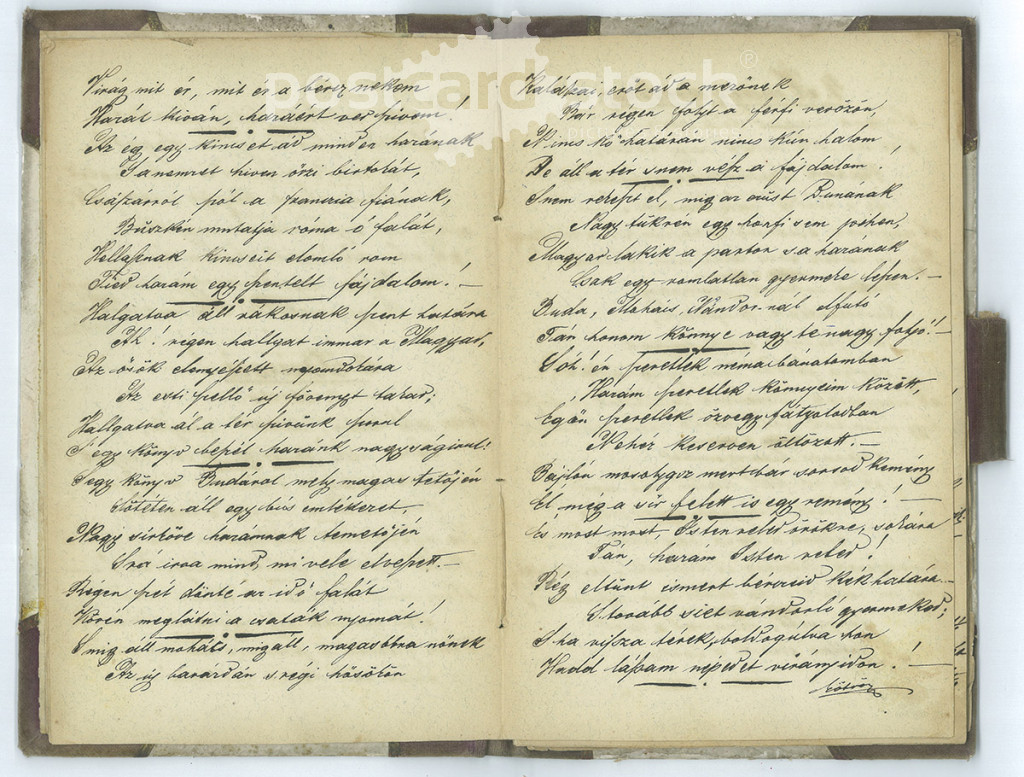 Virág mit ér, mit ér a bérez nekem
Hazát kiván, hazáért ver szivem!
Az ég egy kincset ád minden hazának
S a nemzet hiven őrzi birtokát,
Császárról szól a franczia fiának,
Büszkén mutatja róma ó falát,
Hellasznak kincseit elomló rom
Tied hazám egy szentelt fájdalom! —
Halgatva áll rákosnak szent határa
Ah! régen hallgat immar a Magyar,
Az örök elenyészett nyomdokára
Az esti szellő új fövenyt takar;
Hallgatva ál a tér szivünk szorul
S egy könyv beszél hazánk nagyságirul!
S egy könyv Budárol mely magas tetőjén
Sötéten áll egy bús emlékezet,
Nagy sirköve hazámnak temetőjén
S rá irva mind, mi véle elveszett. —
Régen szét dönté az idő falát
Kövén meglátni a csaták nyomát!
S mig áll mohács, mig áll, magasbra nőnek
Az új barázdán s régi hősökön
Kalászai, erőt ád a mezőnek
Bár régen folyt a férfi verözön,
Nincs kő határán nincs kún halom
De áll a tér s nem vész a fájdalom!
S nem veszett el, mig az ezüst Dunának
Nagy tükrén egy honfi szem pihen,
Magyar lakik a parton s a hazának
Csak egy romlatlan gyermeke leszen. —
Buda, Mohács, Nándor-nál elfutó
Tán honom könnye vagy te nagy folyó! —
S óh! én szeretlek néma bánatomban
Hazám szeretlek könnyeim között,
Égőn szeretlek özvegy fátyolodban
Nehéz keserven öltözött. —
Bájlón mosolygsz mert bár sorsod kemény
Él még a sir felett is egy remény! —
És most most, Isten veled örökre, sokára
Tán, hazám Isten veled!
Rég eltünt ismert bérczeid kék határa —
S tovább siet vándorló gyermeked;
S ha vissza térek, boldogúlva ton
Hadd lássam népedet virányidon! —
Eötvös